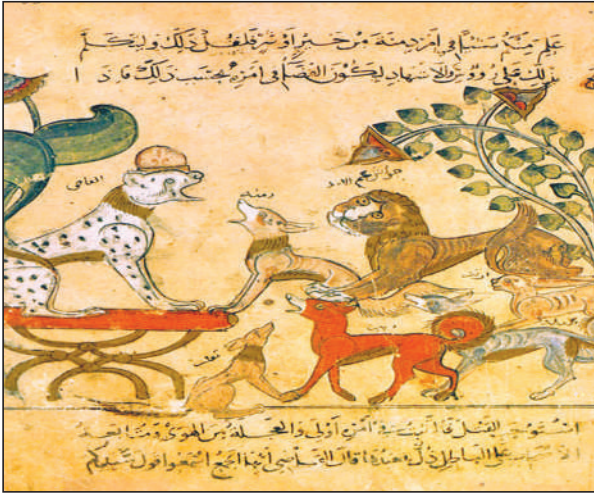 علم منكم شيئا في امر دمنة من خير او شر فليقل ذلك وليتكلم
بذلك على رؤوس الاشهاد ليكون القضاء في امره بحسب ذلك فاذا
القاضي
دمنه
عم الاسد
ارنب
ثعلب
استوجب القتل فالتثبت في امره اولى والعجلة من الهوى ومتابعة
على الباطل ذل وعندها قال القاضي ايها الجمع اسمعوا قول سيدكم